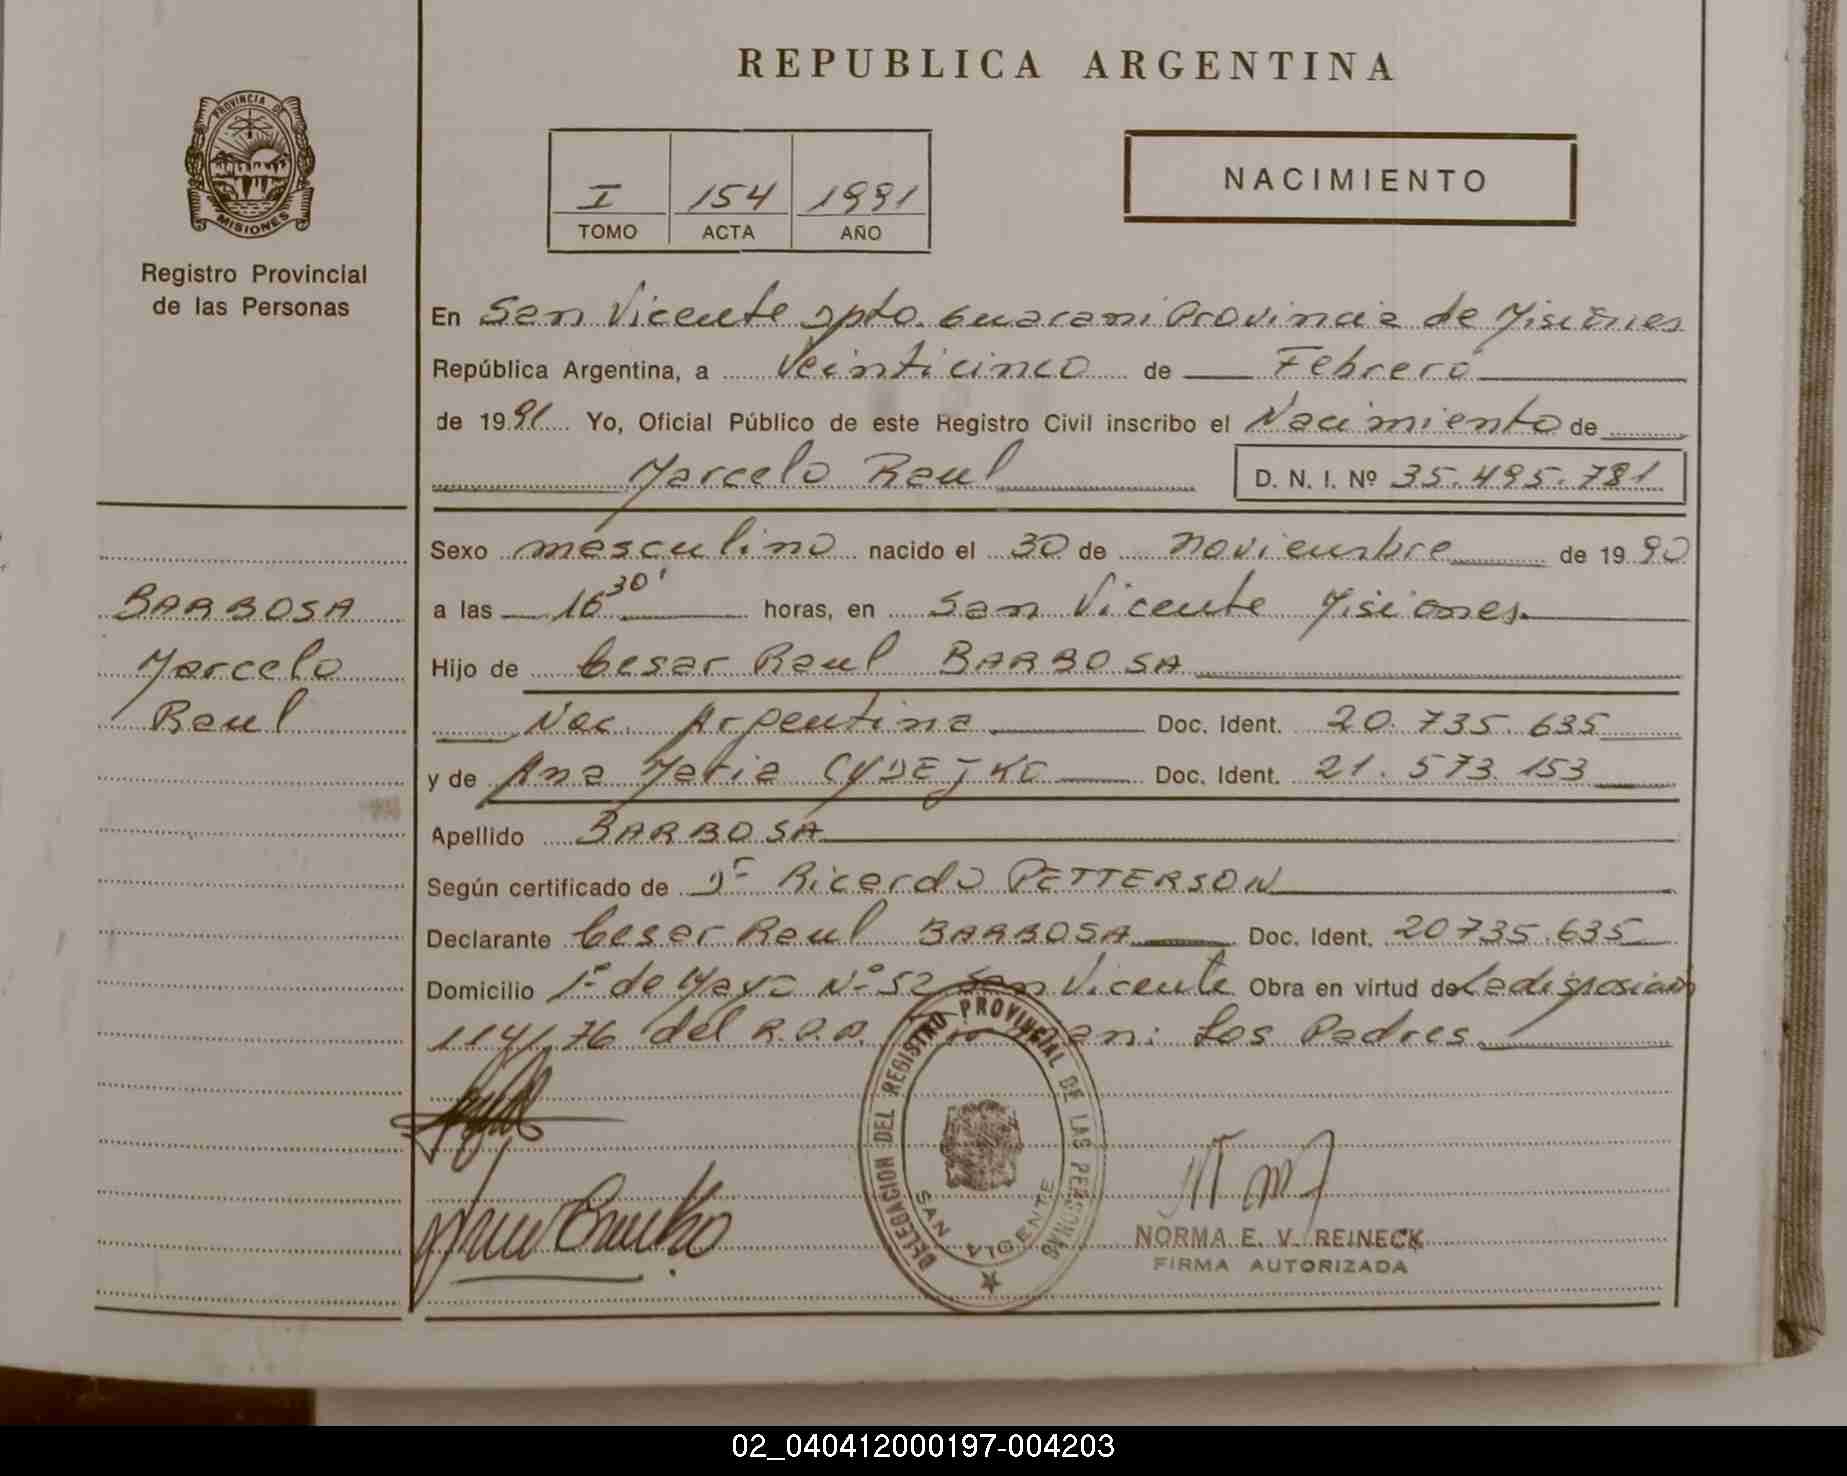 REPUBLICA ARGENTINA
PROVINCIA DE
MISIONES
Registro Provincial
de las Personas
I 154 1991
TOMO ACTA AÑO
NACIMIENTO
En San Vicente Dpto. Guarani Provincia de Misiones
República Argentina, a Veinticinco de Febrero
de 1991 Yo, Oficial Público de este Registro Civil inscribo el Nacimiento de
Marcelo Raul D. N. I. Nº 35.495.781
Sexo masculino nacido el 30 de Noviembre de 1990
a las 16 30' horas, en San Vicente Misiones
Hijo de Cesar Raul BARBOSA
Nac. Argentina Doc. Ident. 20.735.635
y de Ana Maria CYDEJKO Doc. Ident. 21.573.153
Apellido BARBOSA
Según certificado de Dr Ricardo PETTERSON
Declarante Cesar Raul BARBOSA Doc. Ident. 20735.635
Domicilio 1º de Mayo Nº 52 San Vicente Obra en virtud de La disposición
114/76 del R.P.P. Los Padres
BARBOSA
Marcelo
Raul
DELEGACION DEL REGISTRO PROVINCIAL DE LAS PERSONAS
SAN VICENTE
NORMA E. V. REINECK
FIRMA AUTORIZADA
02_040412000197-004203